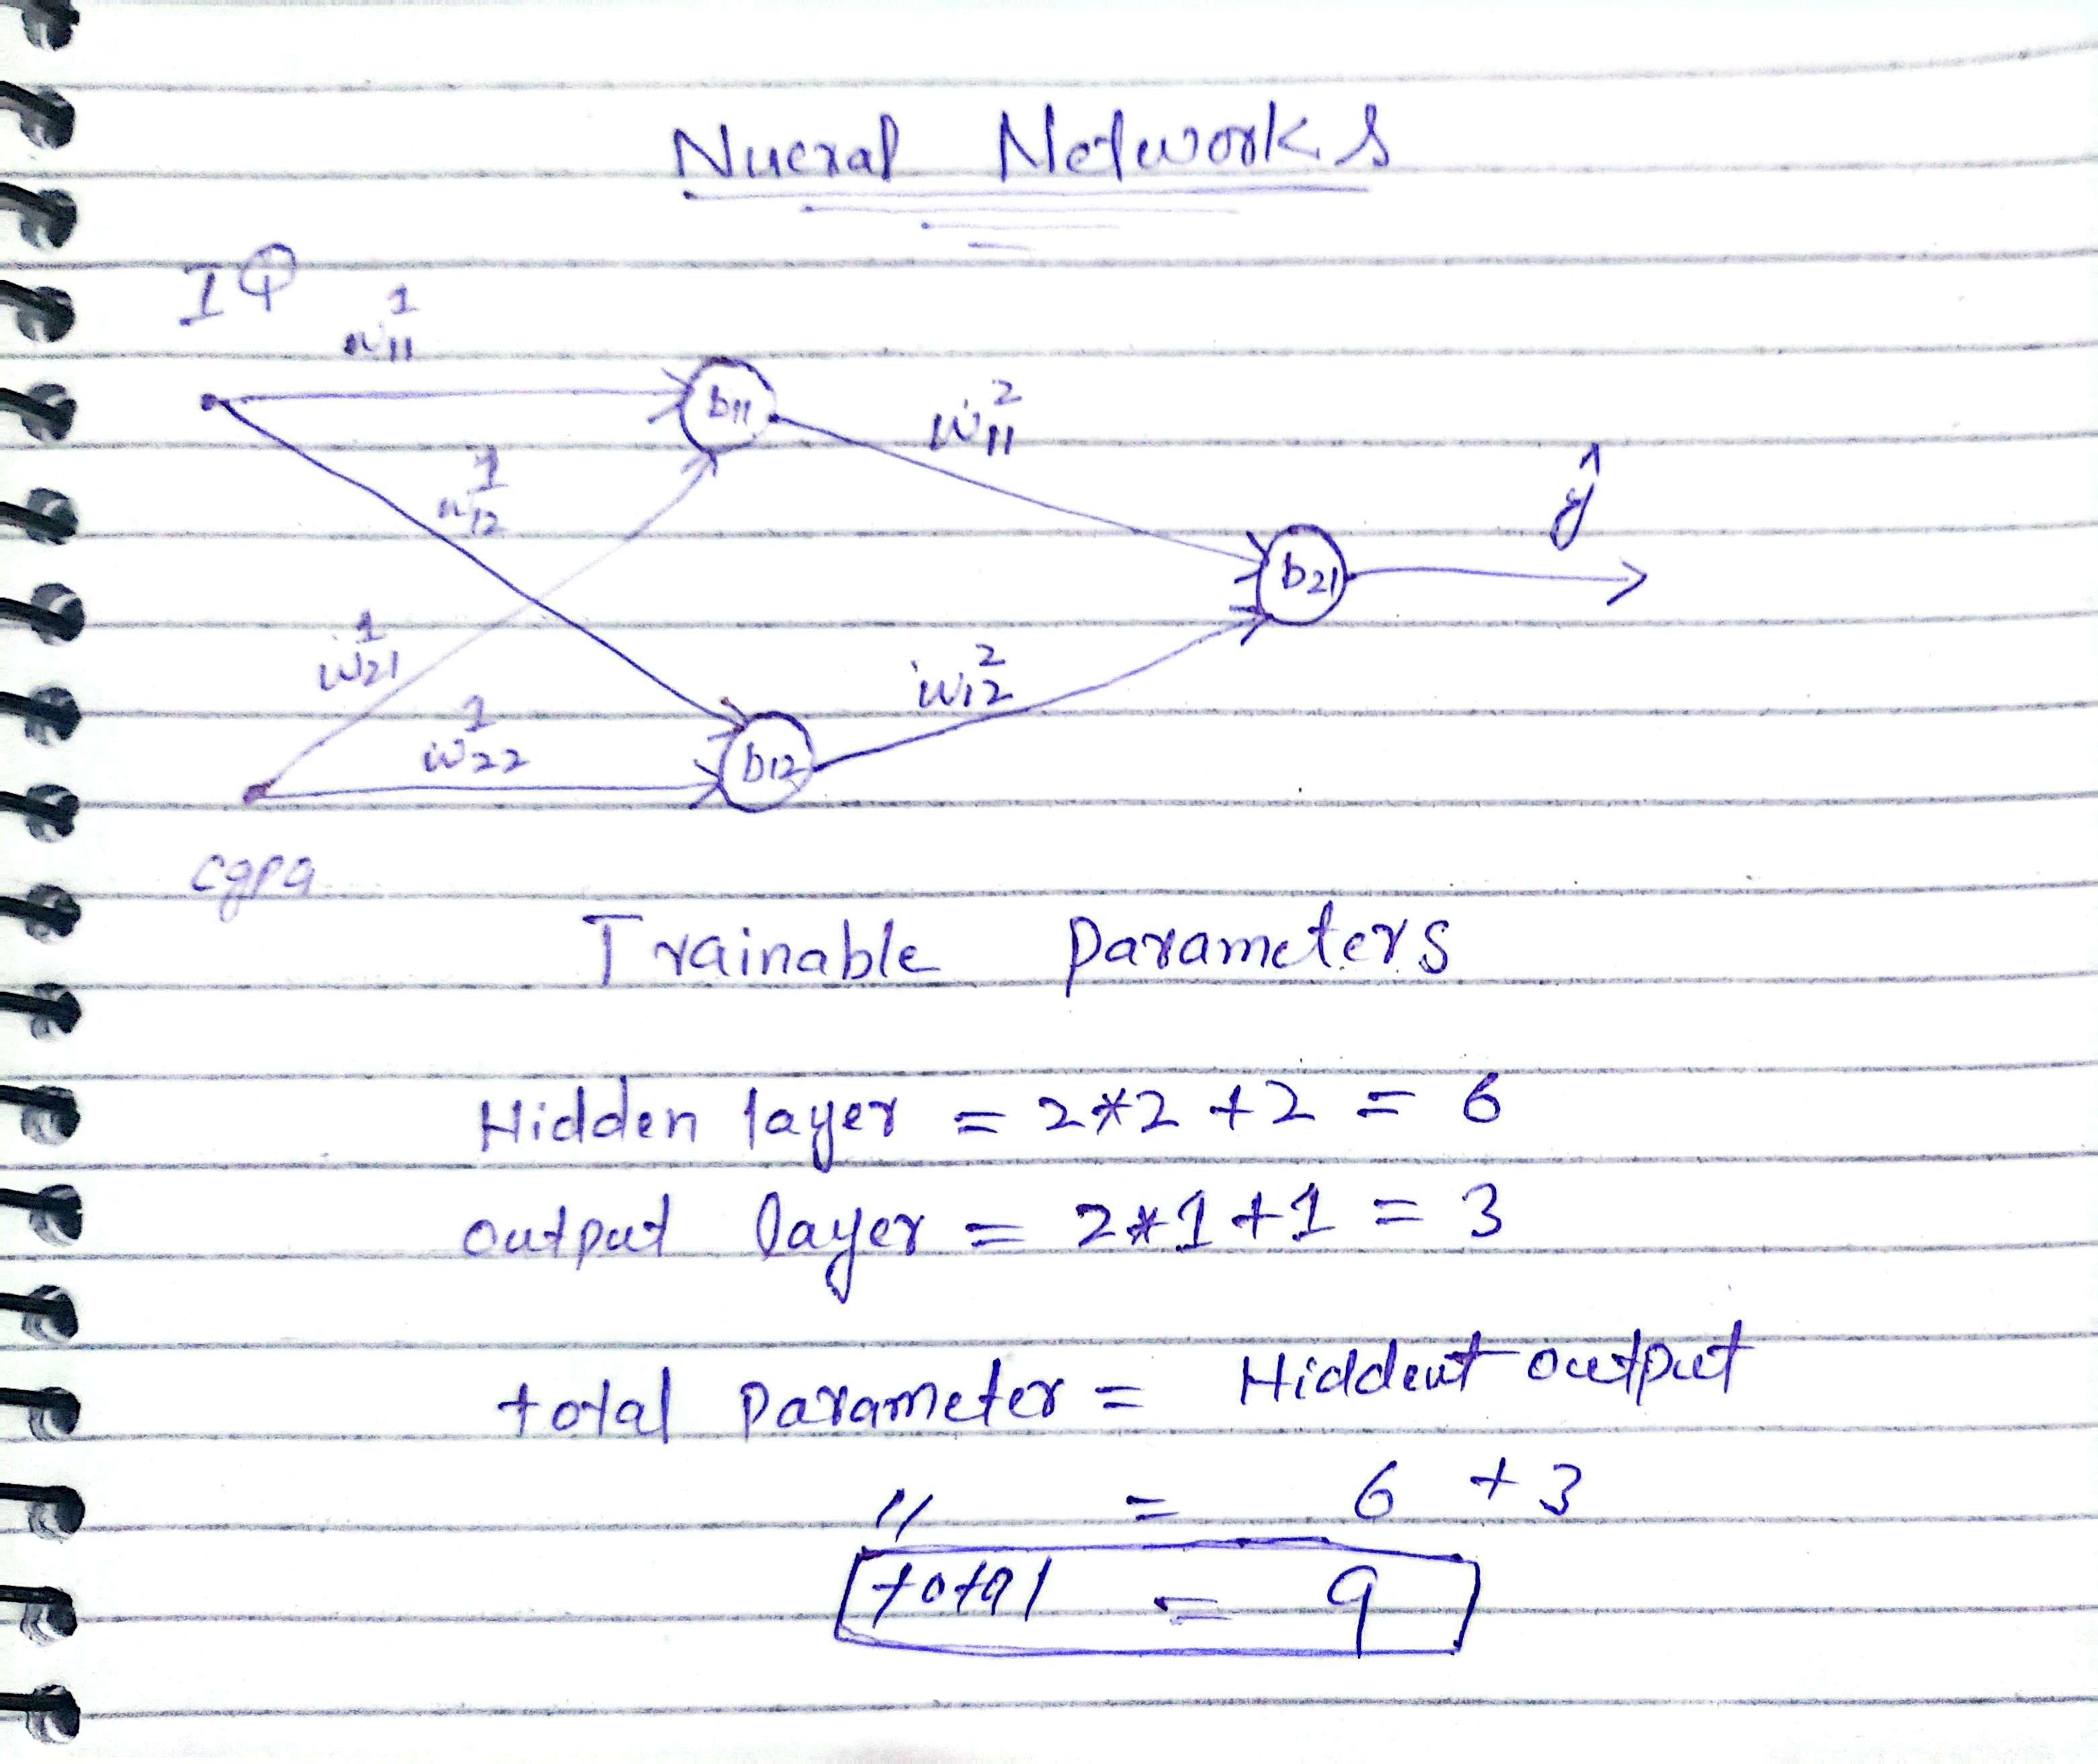 Nueral Networks
IQ
w¹₁₁
b₁₁
w²₁₁
w¹₁₂
ŷ
b₂₁
w¹₂₁
w²₁₂
w¹₂₂
b₁₂
cgpa
Trainable Parameters
Hidden layer = 2*2 +2 = 6
output layer = 2*1+1 = 3
total Parameter = Hidden+ output
" = 6 + 3
total = 9